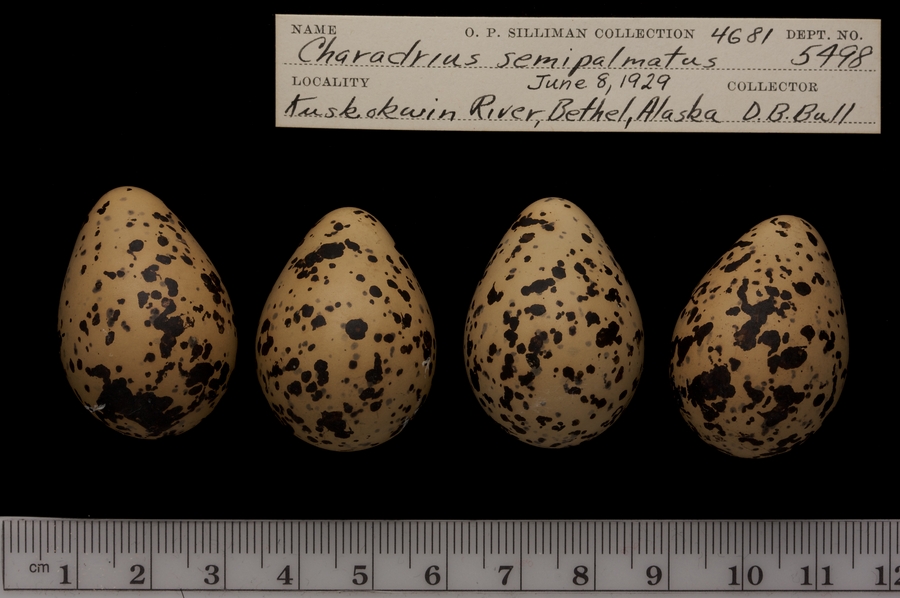 NAME O. P. SILLIMAN COLLECTION 4681 DEPT. NO.
Charadrius semipalmatus 5498
LOCALITY June 8, 1929 COLLECTOR
Kuskokwin River, Bethel, Alaska D.B.Bull
cm 1 2 3 4 5 6 7 8 9 10 11 12